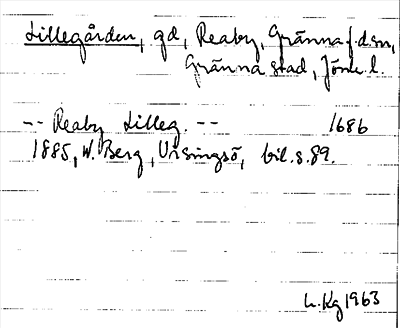 Lillegården, gd, Reaby, Gränna f.d. sn,
Gränna stad, Jönk. l.
-- Reaby Lilleg. -- 1686
1885, W. Berg, Visingsö, bil. s. 89.
L. Kg 1963